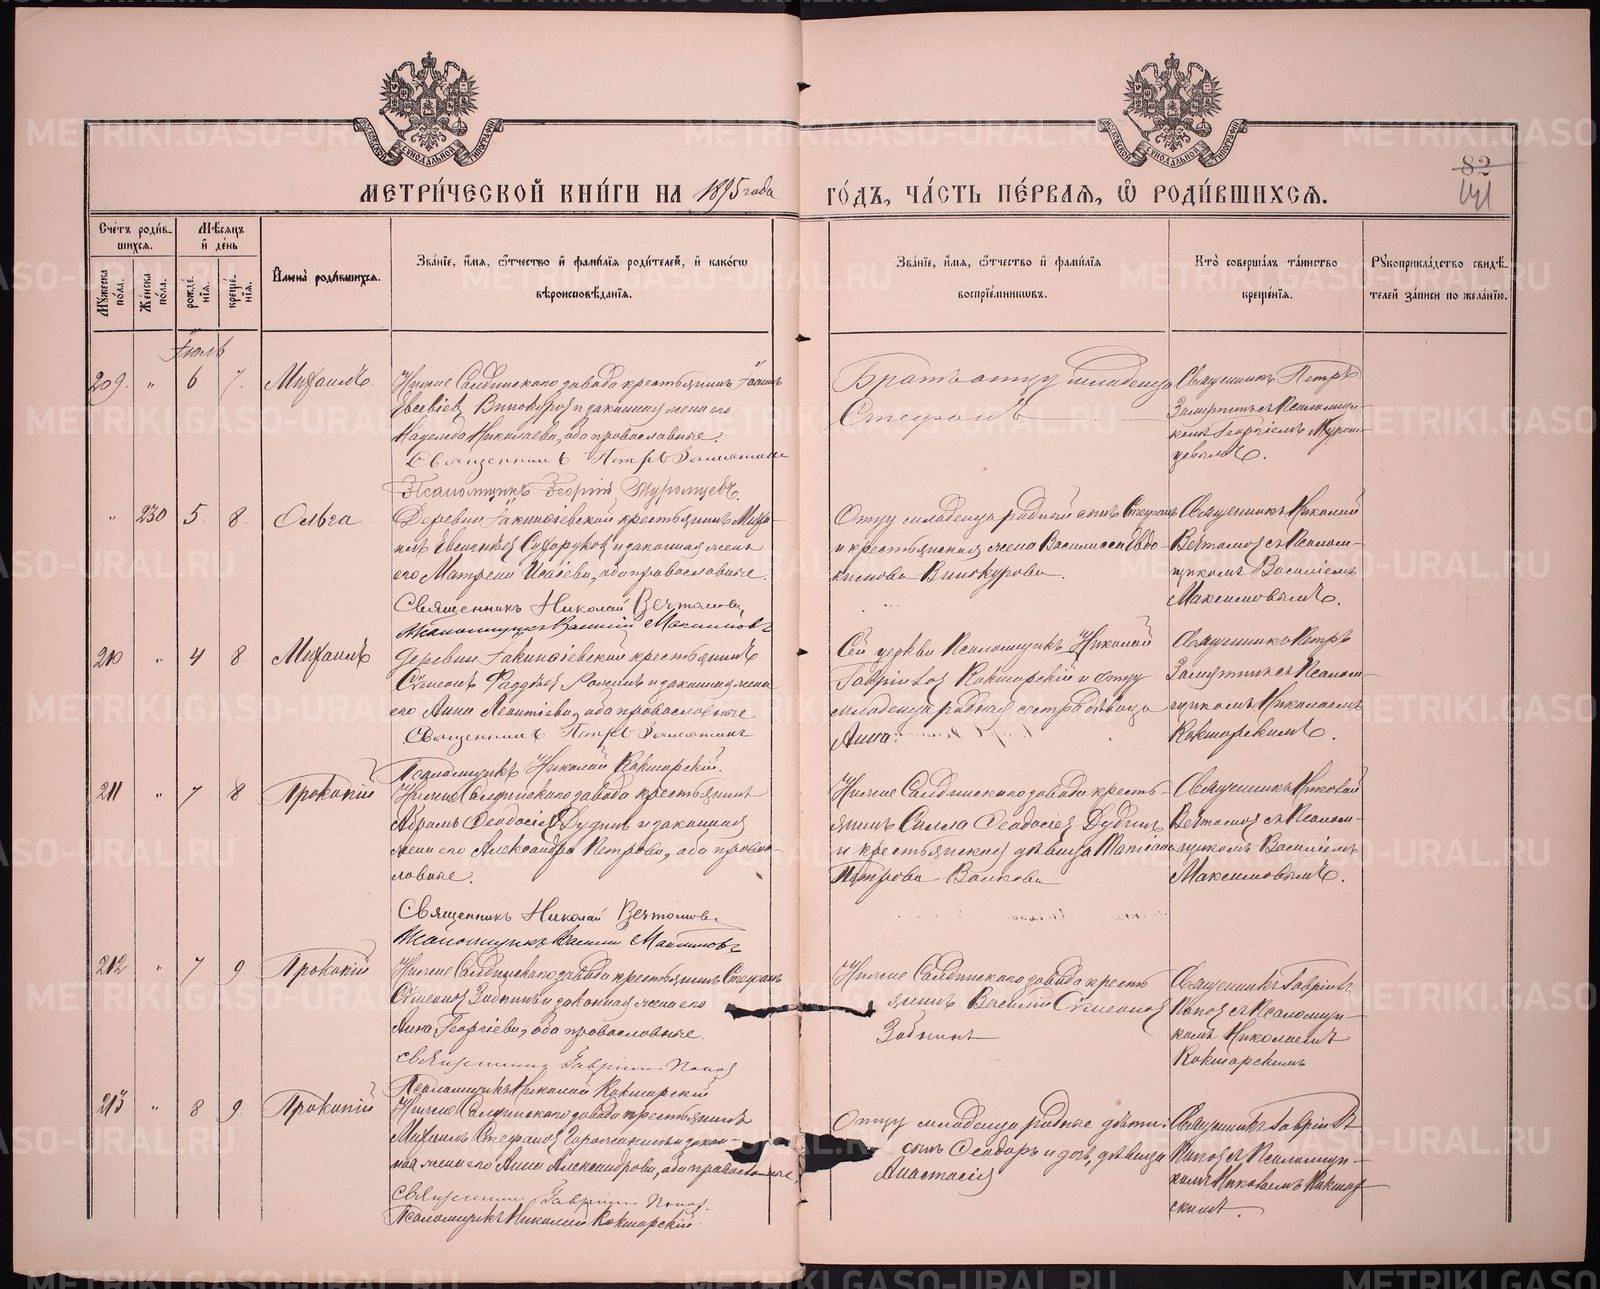 МЕТРИ́ЧЕСКОЙ КНИ́ГИ НА 1895 года ГО́ДЪ, ЧА́СТЬ ПЕ́РВАЯ, Ѽ РОДИ́ВШИХСЯ.
82
Сче́тъ роди́в-
шихся.
Мѣсяцъ
и де́нь
Му́жеска по́ла.
Же́нска по́ла.
рожде́нія.
креще́нія.
И҆мена̀ роди́вшихся.
Зва́ніе, и҆́мя, ѻ҆́тчество и҆ фамѝлія роди́телей, и҆ како́гѡ
вѣроисповѣ́данія.
Зва́ніе, и҆́мя, ѻ҆́тчество и҆ фамѝлія
воспріе́мниковъ.
Кто̀ соверша́лъ та́инство
креще́нія.
Рукоприкла́дство свидѣ́-
телей за́писи по жела́нію.
Іюль
209. „ 6 7. Михаилъ.
Нижне Салдинскаго завода крестьянинъ Іоаннъ
Евсевіевъ Винокуровъ и законная жена его
Надежда Николаева, оба православные.
Священникъ Петръ Замятинъ
Псаломщикъ Георгій Муромцевъ.
Братъ отцу младенца
Стефанъ
Священникъ Петръ
Замятинъ съ Псаломщи-
комъ Георгіемъ Муром-
цевымъ.
„ 230 5. 8. Ольга
Деревни Іакинѳіевской крестьянинъ Миха-
илъ Евгеньевъ Сухоруковъ и законная жена
его Матрена Исаіева, оба православные.
Священникъ Николай Вечтомовъ
Псаломщикъ Василій Максимовъ
Отцу младенца родной сынъ Стефанъ
и крестьянская жена Василисса Евдо-
кимова Винокурова.
Священникъ Николай
Вечтомовъ съ Псалом-
щикомъ Василіемъ
Максимовымъ.
210 „ 4 8. Михаилъ
Деревни Іакинѳіевской крестьянинъ
Сѵмеонъ Ѳаддѣевъ и законная жена
его Анна Леонтіева, оба православные
Священникъ Петръ Замятинъ
Псаломщикъ Николай Кокшарскій.
Сей церкви Псаломщикъ Николай
Гавріиловъ Кокшарскій и отцу
младенца родная сестра дѣвица
Анна.
Священникъ Петръ
Замятинъ съ Псалом-
щикомъ Николаемъ
Кокшарскимъ.
211 „ 7 8 Прокопій
Нижне Салдинскаго завода крестьянинъ
Абрамъ Ѳеодосіевъ Дудинъ и законная
жена его Александра Петрова, оба право-
славные.
Священникъ Николай Вечтомовъ
Псаломщикъ Василій Максимовъ
Нижне Салдинскаго завода кресть-
янинъ Савва Ѳеодосіевъ Дудинъ
и крестьянская дѣвица
Петрова Волкова
Священникъ Николай
Вечтомовъ съ Псалом-
щикомъ Василіемъ
Максимовымъ.
212 „ 7 9 Прокопій
Нижне Салдинскаго завода крестьянинъ Стефанъ
Сѵмеоновъ и законная жена его
Анна Георгіева, оба православные.
Священникъ Гавріилъ Поповъ
Псаломщикъ Николай Кокшарскій
Нижне Салдинскаго завода кресть
янинъ Василій Сѵмеоновъ
Священникъ Гавріилъ
Поповъ съ Псаломщи-
комъ Николаемъ
Кокшарскимъ
213 „ 8 9. Прокопій
Нижне Салдинскаго завода крестьянинъ
Михаилъ Стефановъ и закон-
ная жена его Анна Александрова, оба православные
Священникъ Гавріилъ Поповъ.
Псаломщикъ Николай Кокшарскій.
Отцу младенца родные дѣти:
сынъ Ѳеодоръ и дочь, дѣвица
Анастасія
Священникъ Гавріилъ
Поповъ съ Псаломщи-
комъ Николаемъ Кокшар-
скимъ.
METRIKI.GASO-URAL.RU